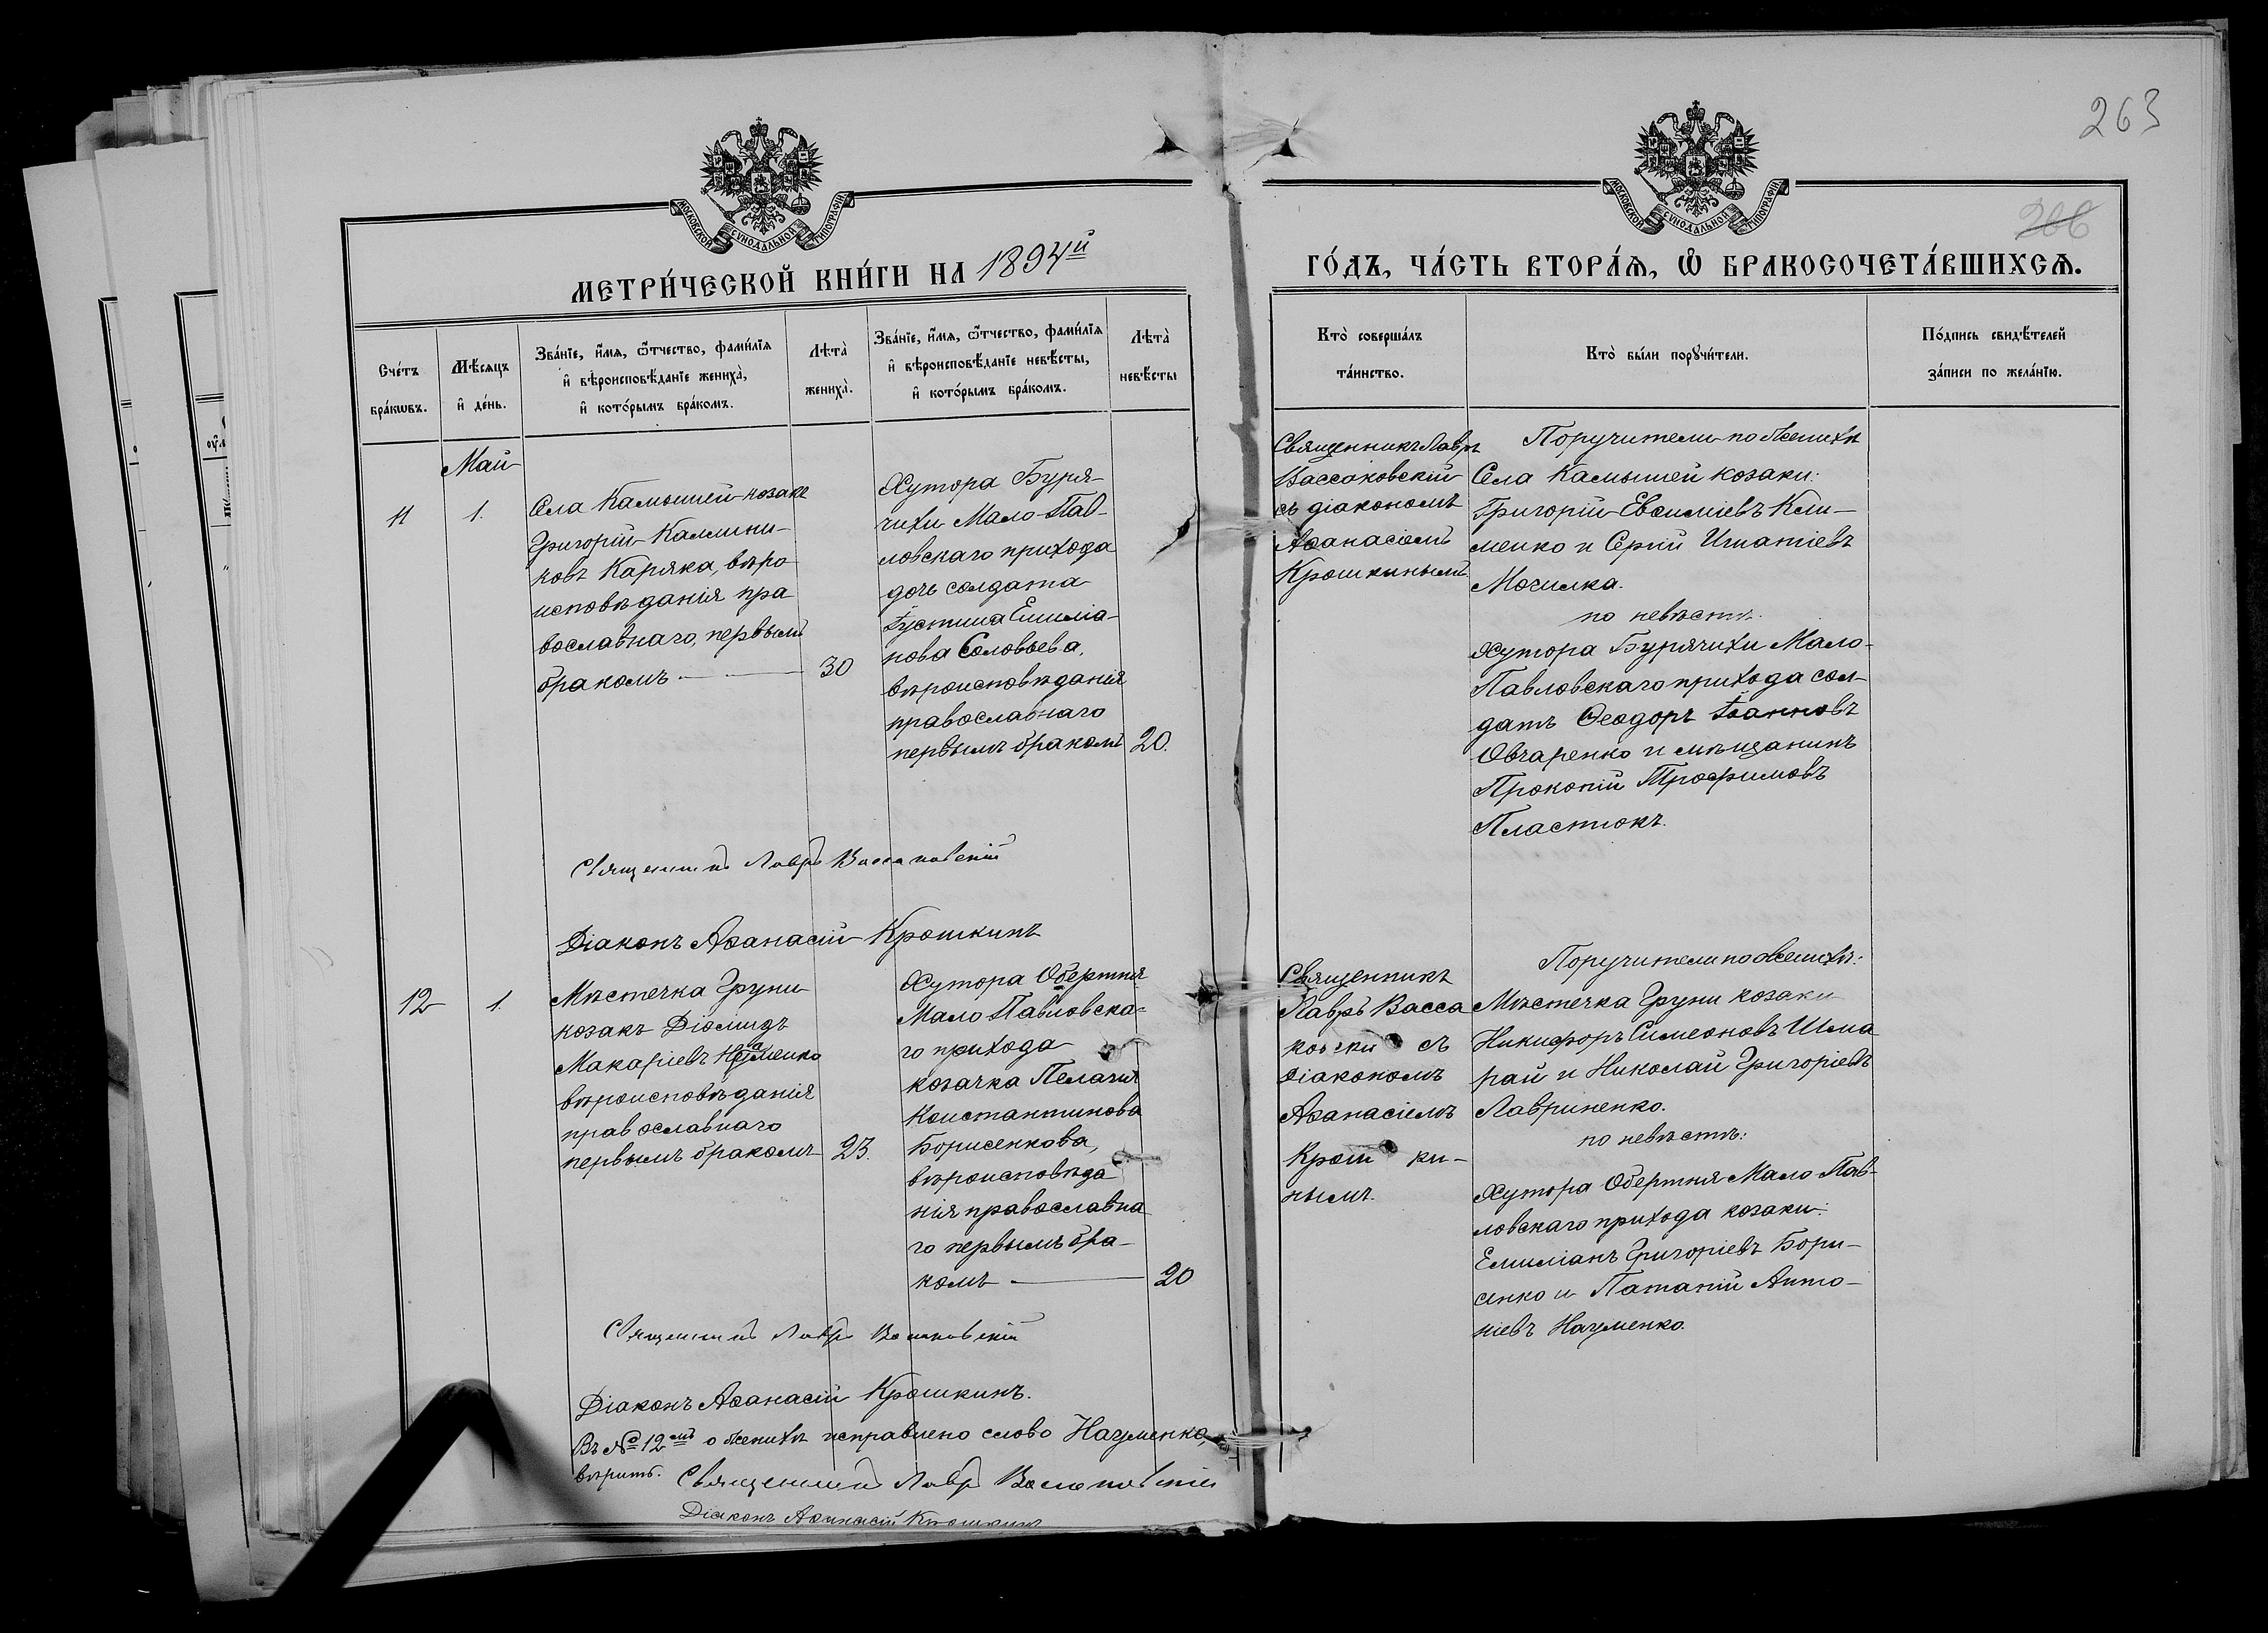 263
206
МОСКОВСКОЙ СУНОДАЛЬНОЙ ТИПОГРАФІИ
МОСКОВСКОЙ СУНОДАЛЬНОЙ ТИПОГРАФІИ
МЕТРИ́ЧЕСКОЙ КНИ́ГИ НА 1894й
ГО́ДЪ, ЧА́СТЬ ВТОРА́Ѧ, Ѽ БРАКОСОЧЕТА́ВШИХСѦ.
Сче́тъ
бра́кѡвъ.
Мѣ́сяцъ
и҆ де́нь.
Зва́нїе, и҆́мѧ, ѻ҆́тчество, фами́лїѧ
и҆ вѣроисповѣ́данїе жениха̀,
и҆ кото́рымъ бра́комъ.
Лѣта̀
жениха̀.
Зва́нїе, и҆́мѧ, ѻ҆́тчество, фами́лїѧ
и҆ вѣроисповѣ́данїе невѣ́сты,
и҆ кото́рымъ бра́комъ.
Лѣта̀
невѣ́сты
Кто̀ соверша́лъ
та́инство.
Кто̀ бы́ли порꙋчи́тели.
По́дпись свидѣ́телей
за́писи по жела́нїю.
Май
11
1.
Села Камышей козакъ
Григорій Каллини-
ковъ Каряка, вѣро
исповѣданія пра
вославнаго, первымъ
бракомъ — 30
Хутора Буря-
чихи Мало-Пав-
ловскаго прихода
дочь солдата
Іустина Емиліа-
нова Соловьева,
вѣроисповѣданія
православнаго
первымъ бракомъ 20.
Священникъ Лавръ
Вассаковскій
съ діакономъ
Аѳанасіемъ
Крошкинымъ
Поручители по женихѣ
Села Камышей козаки:
Григорій Евѳиміевъ Кли-
менко и Сергій Игнатіевъ
Мочилка.
по невѣстѣ.
Хутора Бурячихи Мало-
Павловскаго прихода сол-
датъ Ѳеодоръ Іоанновъ
Овчаренко и мѣщанинъ
Прокопій Трофимовъ
Пластюкъ.
Священникъ Лавръ Вассаковскій
Діаконъ Аѳанасій Крошкинъ
12
1.
Мѣстечка Груни
козакъ Діомидъ
Макаріевъ Науменко
вѣроисповѣданія
православнаго
первымъ бракомъ 23.
Хутора Обертня
Мало Павловска-
го прихода
козачка Пелагія
Константинова
Борисенкова,
вѣроисповѣда
нія православна
го первымъ бра-
комъ — 20
Священникъ
Лавръ Васса
ковски съ
діакономъ
Аѳанасіемъ
Крош ки-
нымъ.
Поручители по женихѣ:
Мѣстечка Груни козаки
Никифоръ Симеоновъ Шма
рай и Николай Григоріевъ
Лавриненко.
по невѣстѣ:
Хутора Обертня Мало Пав-
ловскаго прихода козаки:
Емиліанъ Григоріевъ Бори-
сенко и Патапій Анто-
ніевъ Науменко.
Священникъ Лавръ Вассаковскій
Діаконъ Аѳанасій Крошкинъ.
Въ № 12мъ о женихѣ исправлено слово Науменко,
вѣрить. Священникъ Лавръ Вассаковскій
Діаконъ Аѳанасій Крошкинъ